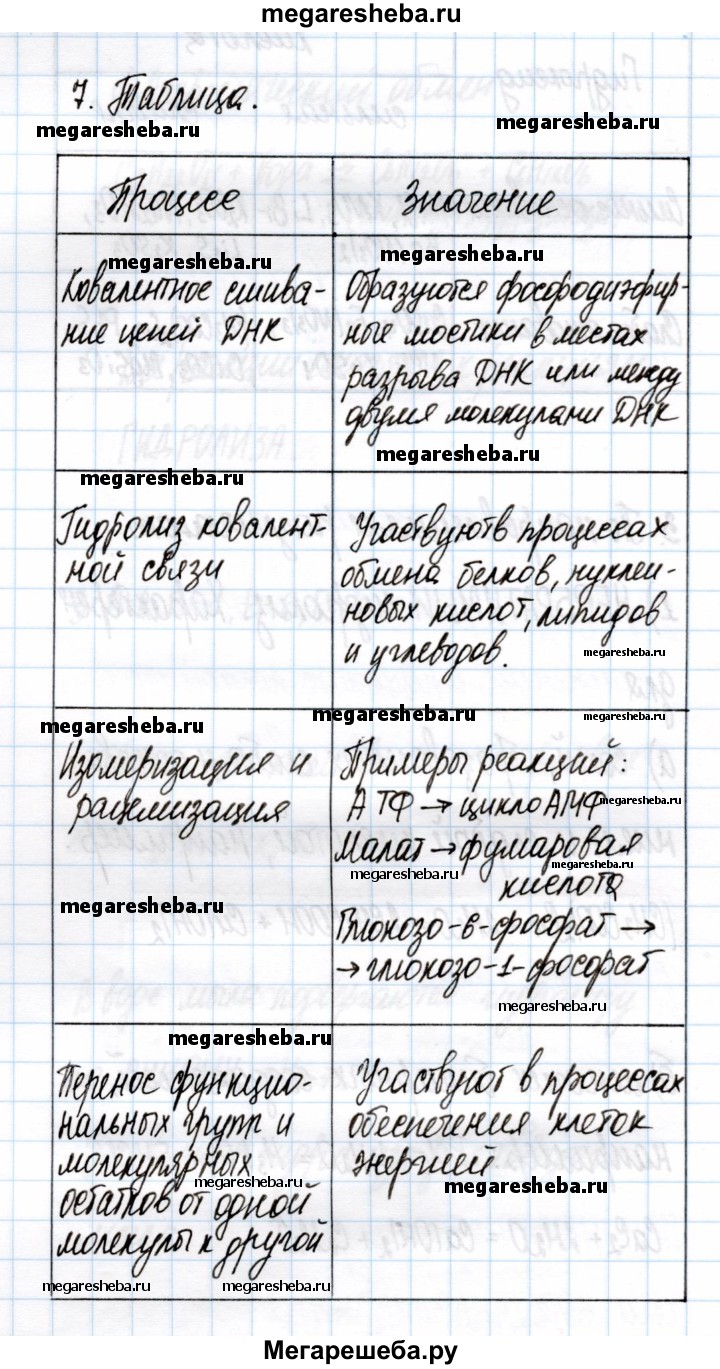 megaresheba.ru
7. Таблица.
megaresheba.ru
megaresheba.ru
Процесс
Значение
megaresheba.ru
megaresheba.ru
Ковалентное сшива-
ние цепей ДНК
Образуются фосфодиэфир-
ные мостики в местах
разрыва ДНК или между
двумя молекулами ДНК
megaresheba.ru
megaresheba.ru
Гидролиз ковалент-
ной связи
Участвуют в процессах
обмена белков, нуклеи-
новых кислот, липидов
и углеводов.
megaresheba.ru
megaresheba.ru
megaresheba.ru
megaresheba.ru
Изомеризация и
рацемизация
megaresheba.ru
Примеры реакций:
АТФ → циклоАМФ
megaresheba.ru
Малат → фумаровая
megaresheba.ru
megaresheba.ru
кислота
Глюкозо-6-фосфат →
→ глюкозо-1-фосфрат
megaresheba.ru
megaresheba.ru
Перенос функцио-
нальных групп и
молекулярных
megaresheba.ru
остатков от одной
молекулы к другой
megaresheba.ru
megaresheba.ru
Участвуют в процессах
обеспечения клеток
энергией
megaresheba.ru
Мегарешеба.ру